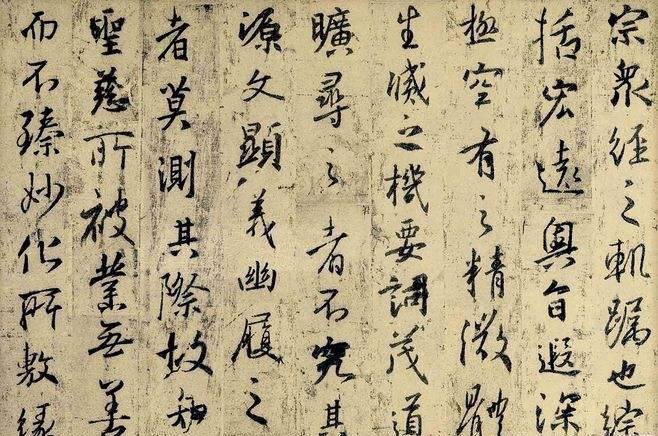 宗眾經之軌躅也綜
括宏遠奧旨遐深
極空有之精微體
生滅之機要詞茂道
曠尋之者不究其
源文顯義幽履之
者莫測其際故知
聖慈所被業無善
而不臻妙化所敷緣